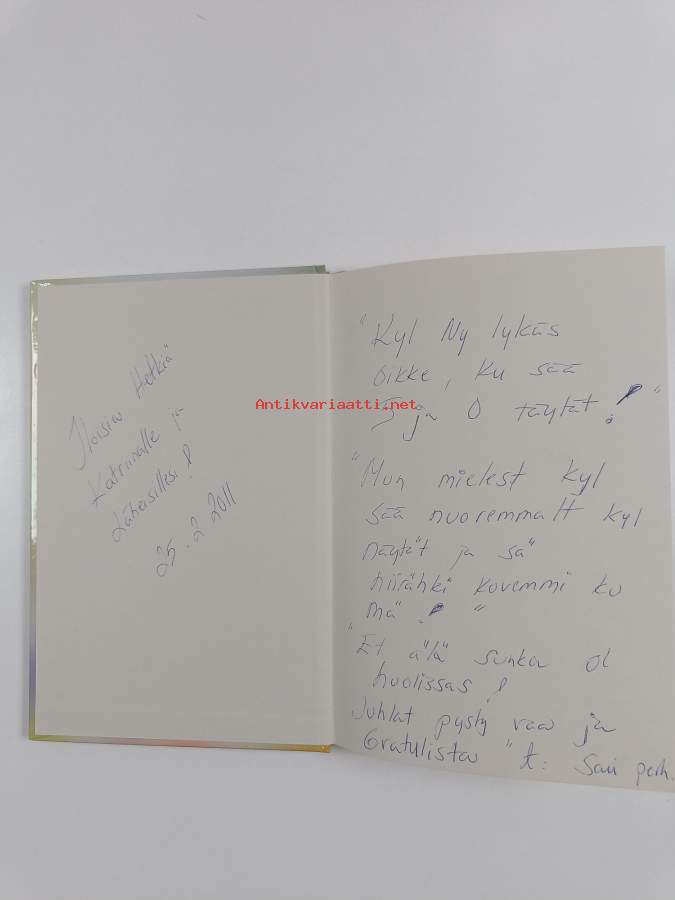 Iloisia Hetkiä
Katriinalle ja
Läheisillesi!
25.2.2011
Antikvariaatti.net
"Kyl Ny lykäs
oikke, ku sää
5 ja 0 täytät!"
"Mun mielest kyl
sää nuoremmalt kyl
näytät ja sä
hiirähki kovemmi ku
mä! "
"Et älä sunka ol
huolissas!
Juhlat pysty vaa ja
Gratulistaa" t: Sari perh.